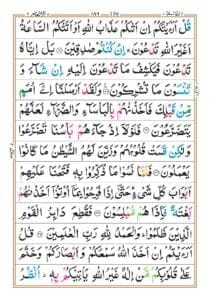 قُلْ اَرَءَيْتَكُمْ اِنْ اَتٰىكُمْ عَذَابُ اللّٰهِ اَوْ اَتَتْكُمُ السَّاعَةُ
اَغَيْرَ اللّٰهِ تَدْعُوْنَ ۚ اِنْ كُنْتُمْ صٰدِقِيْنَ ۝ بَلْ اِيَّاهُ
تَدْعُوْنَ فَيَكْشِفُ مَا تَدْعُوْنَ اِلَيْهِ اِنْ شَآءَ وَ
تَنْسَوْنَ مَا تُشْرِكُوْنَ ۝ وَلَقَدْ اَرْسَلْنَآ اِلٰٓى اُمَمٍ
مِّنْ قَبْلِكَ فَاَخَذْنٰهُمْ بِالْبَاْسَآءِ وَالضَّرَّآءِ لَعَلَّهُمْ
يَتَضَرَّعُوْنَ ۝ فَلَوْلَآ اِذْ جَآءَهُمْ بَاْسُنَا تَضَرَّعُوْا
وَلٰكِنْ قَسَتْ قُلُوْبُهُمْ وَزَيَّنَ لَهُمُ الشَّيْطٰنُ مَا كَانُوْا
يَعْمَلُوْنَ ۝ فَلَمَّا نَسُوْا مَا ذُكِّرُوْا بِهٖ فَتَحْنَا عَلَيْهِمْ
اَبْوَابَ كُلِّ شَيْءٍ ؕ حَتّٰٓى اِذَا فَرِحُوْا بِمَآ اُوْتُوْٓا اَخَذْنٰهُمْ
بَغْتَةً فَاِذَا هُمْ مُّبْلِسُوْنَ ۝ فَقُطِعَ دَابِرُ الْقَوْمِ
الَّذِيْنَ ظَلَمُوْا ؕ وَالْحَمْدُ لِلّٰهِ رَبِّ الْعٰلَمِيْنَ ۝ قُلْ
اَرَءَيْتُمْ اِنْ اَخَذَ اللّٰهُ سَمْعَكُمْ وَاَبْصَارَكُمْ وَخَتَمَ
عَلٰى قُلُوْبِكُمْ مَّنْ اِلٰهٌ غَيْرُ اللّٰهِ يَاْتِيْكُمْ بِهٖ ؕ اُنْظُرْ